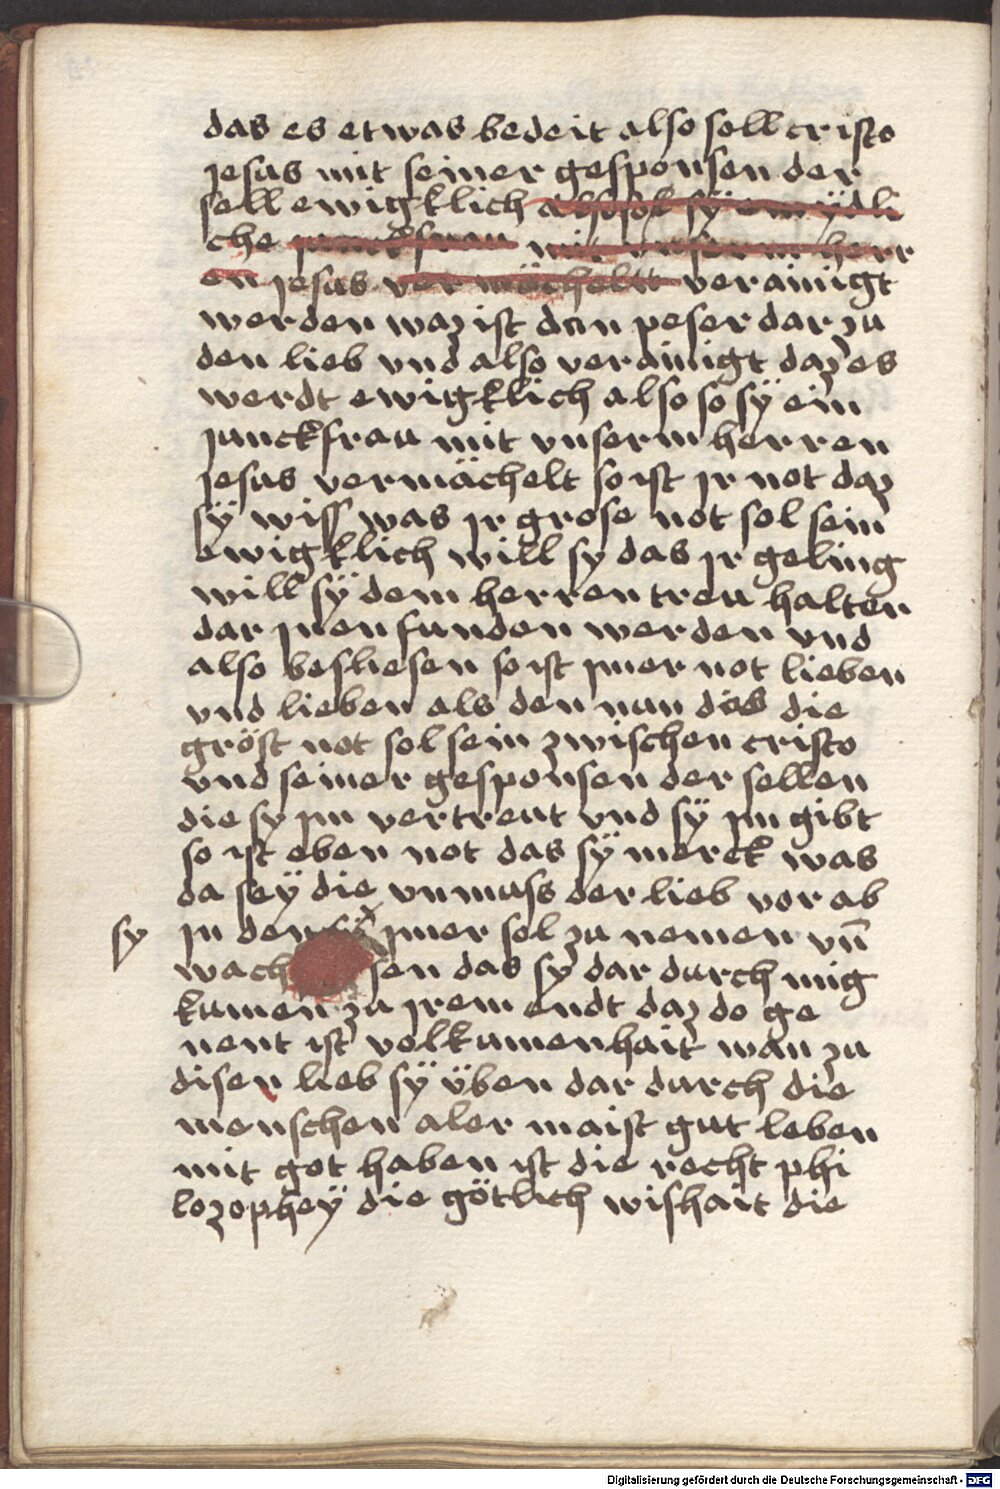 das es etwas bedeit also soll cristo
jesus mit seiner gesponsen der
sell ewigklich also sol sÿ ein ÿdli
che junckfrau mit unserm herr
en jesus vermächelt verainigt
werden waz ist dan peser dar zu
den lieb und also verainigt daz es
werdt ewigklich also so sÿ ein
junckfrau mit vnserm herren
jesus vermächelt so ist jr not daz
sÿ wiss was jr grose not sol sein
ewigklich will sy das jr geling
will sÿ dem herren treu halten
dar jnen funden werden vnd
also besliesen so ist jmer not lieben
vnd lieben als den nun das die
gröst not sol sein zwischen cristo
vnd seiner gesponsen der sellen
die sy jm vertreut vnd sÿ jm gibt
so ist eben not das sÿ merck was
da seÿ die vnmass der lieb vor ab
sy jn den jmer sol zu nemen vn̄
wach sen das sÿ dar durch mig
kumen zu jrem endt daz do ge
nent ist volkumenhait wan zu
diser lieb sÿ üben dar durch die
menschen aler maist gut leben
mit got haben ist die recht phi
lozopheÿ die götlich wishait die
Digitalisierung gefördert durch die Deutsche Forschungsgemeinschaft - DFG